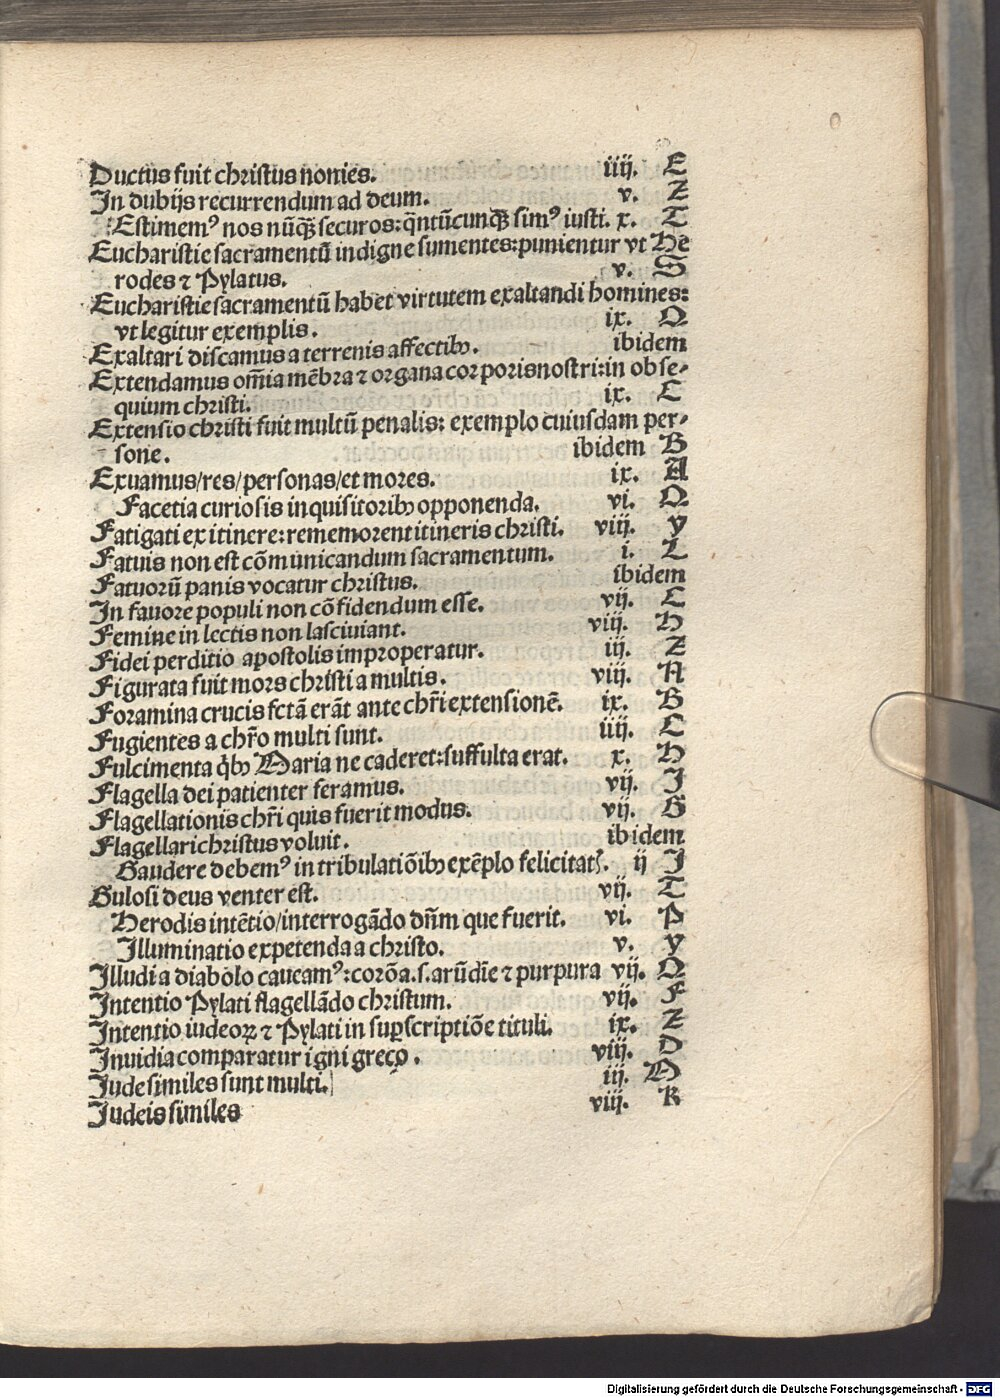 Ductus fuit christus nonies. iiij. E
In dubijs recurrendum ad deum. v. Z
Estimemꝰ nos nūꝗ̄ securos: q̄ntūcunꝗ̄ simꝰ iusti. x. T
Eucharistie sacramentū indigne sumentes: punientur vt He
rodes ⁊ Pylatus. v. S
Eucharistie sacramentū habet virtutem exaltandi homines:
vt legitur exemplis. ix. O
Exaltari discamus a terrenis affectibꝰ. ibidem
Extendamus om̄ia mēbra ⁊ organa corporis nostri: in obse⸗
quium christi. ix. C
Extensio christi fuit multū penalis: exemplo cuiusdam per⸗
sone. ibidem B
Exuamus/res/personas/et mores. ix. A
Facetia curiosis inquisitoribꝰ opponenda. vi. O
Fatigati ex itinere: rememorent itineris christi. viij. y
Fatuis non est cōmunicandum sacramentum. i. L
Fatuorū panis vocatur christus. ibidem
In fauore populi non cōfidendum esse. vij. C
Femine in lectis non lasciuiant. viij. H
Fidei perditio apostolis improperatur. iij. Z
Figurata fuit mors christi a multis. viij. A
Foramina crucis fctā erāt ante chr̄i extensionē. ix. B
Fugientes a chr̄o multi sunt. iiij. C
Fulcimenta q̇bꝰ Maria ne caderet: suffulta erat. x. H
Flagella dei patienter feramus. vij. I
Flagellationis chr̄i quis fuerit modus. vij. G
Flagellari christus voluit. ibidem
Gaudere debemꝰ in tribulatiōibꝰ exēplo felicitatꝭ. ij I
Gulosi deus venter est. vij. T
Herodis intētio/interrogādo dn̄m que fuerit. vi. P
Illuminatio expetenda a christo. v. y
Illudi a diabolo caueamꝰ: corōa .s. arūdīe ⁊ purpura vij. O
Intentio Pylati flagellādo christum. vij. F
Intentio iudeoꝝ ⁊ Pylati in suꝑscriptiōe tituli. ix. Z
Inuidia comparatur igni greco. viij. D
Jude similes sunt multi. iij. M
Judeis similes viij. K
Digitalisierung gefördert durch die Deutsche Forschungsgemeinschaft - DFG